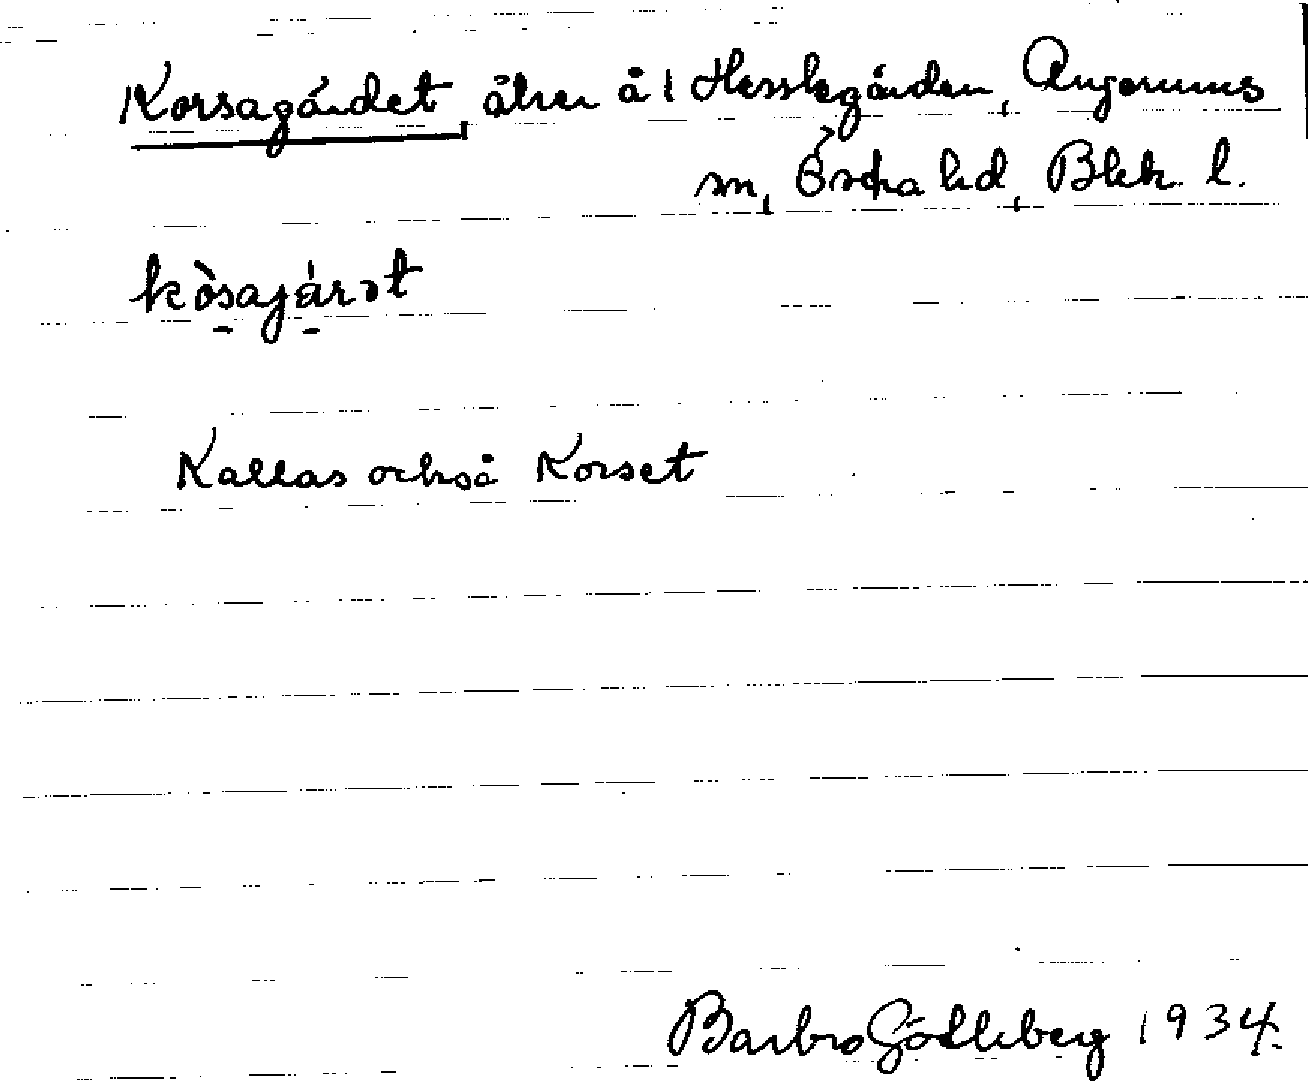 Korsagärdet, åker å 1 Hesslegården, Augerums
sn, Östra hd, Blek. l.
kòsajárət
Kallas också Korset
Barbro Götlberg 1934.